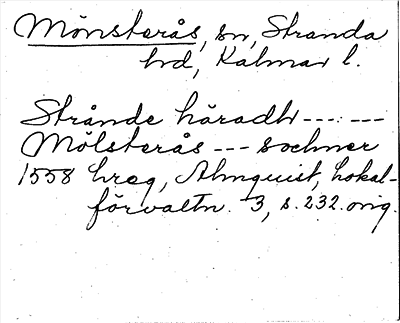 Mönsterås, sn, Stranda
hd, Kalmar l.
Strånde häradh --- ---
Mölsterås --- sochner
1558 hreg, Almquist, Lokal-
förvaltn. 3, s. 232. orig.